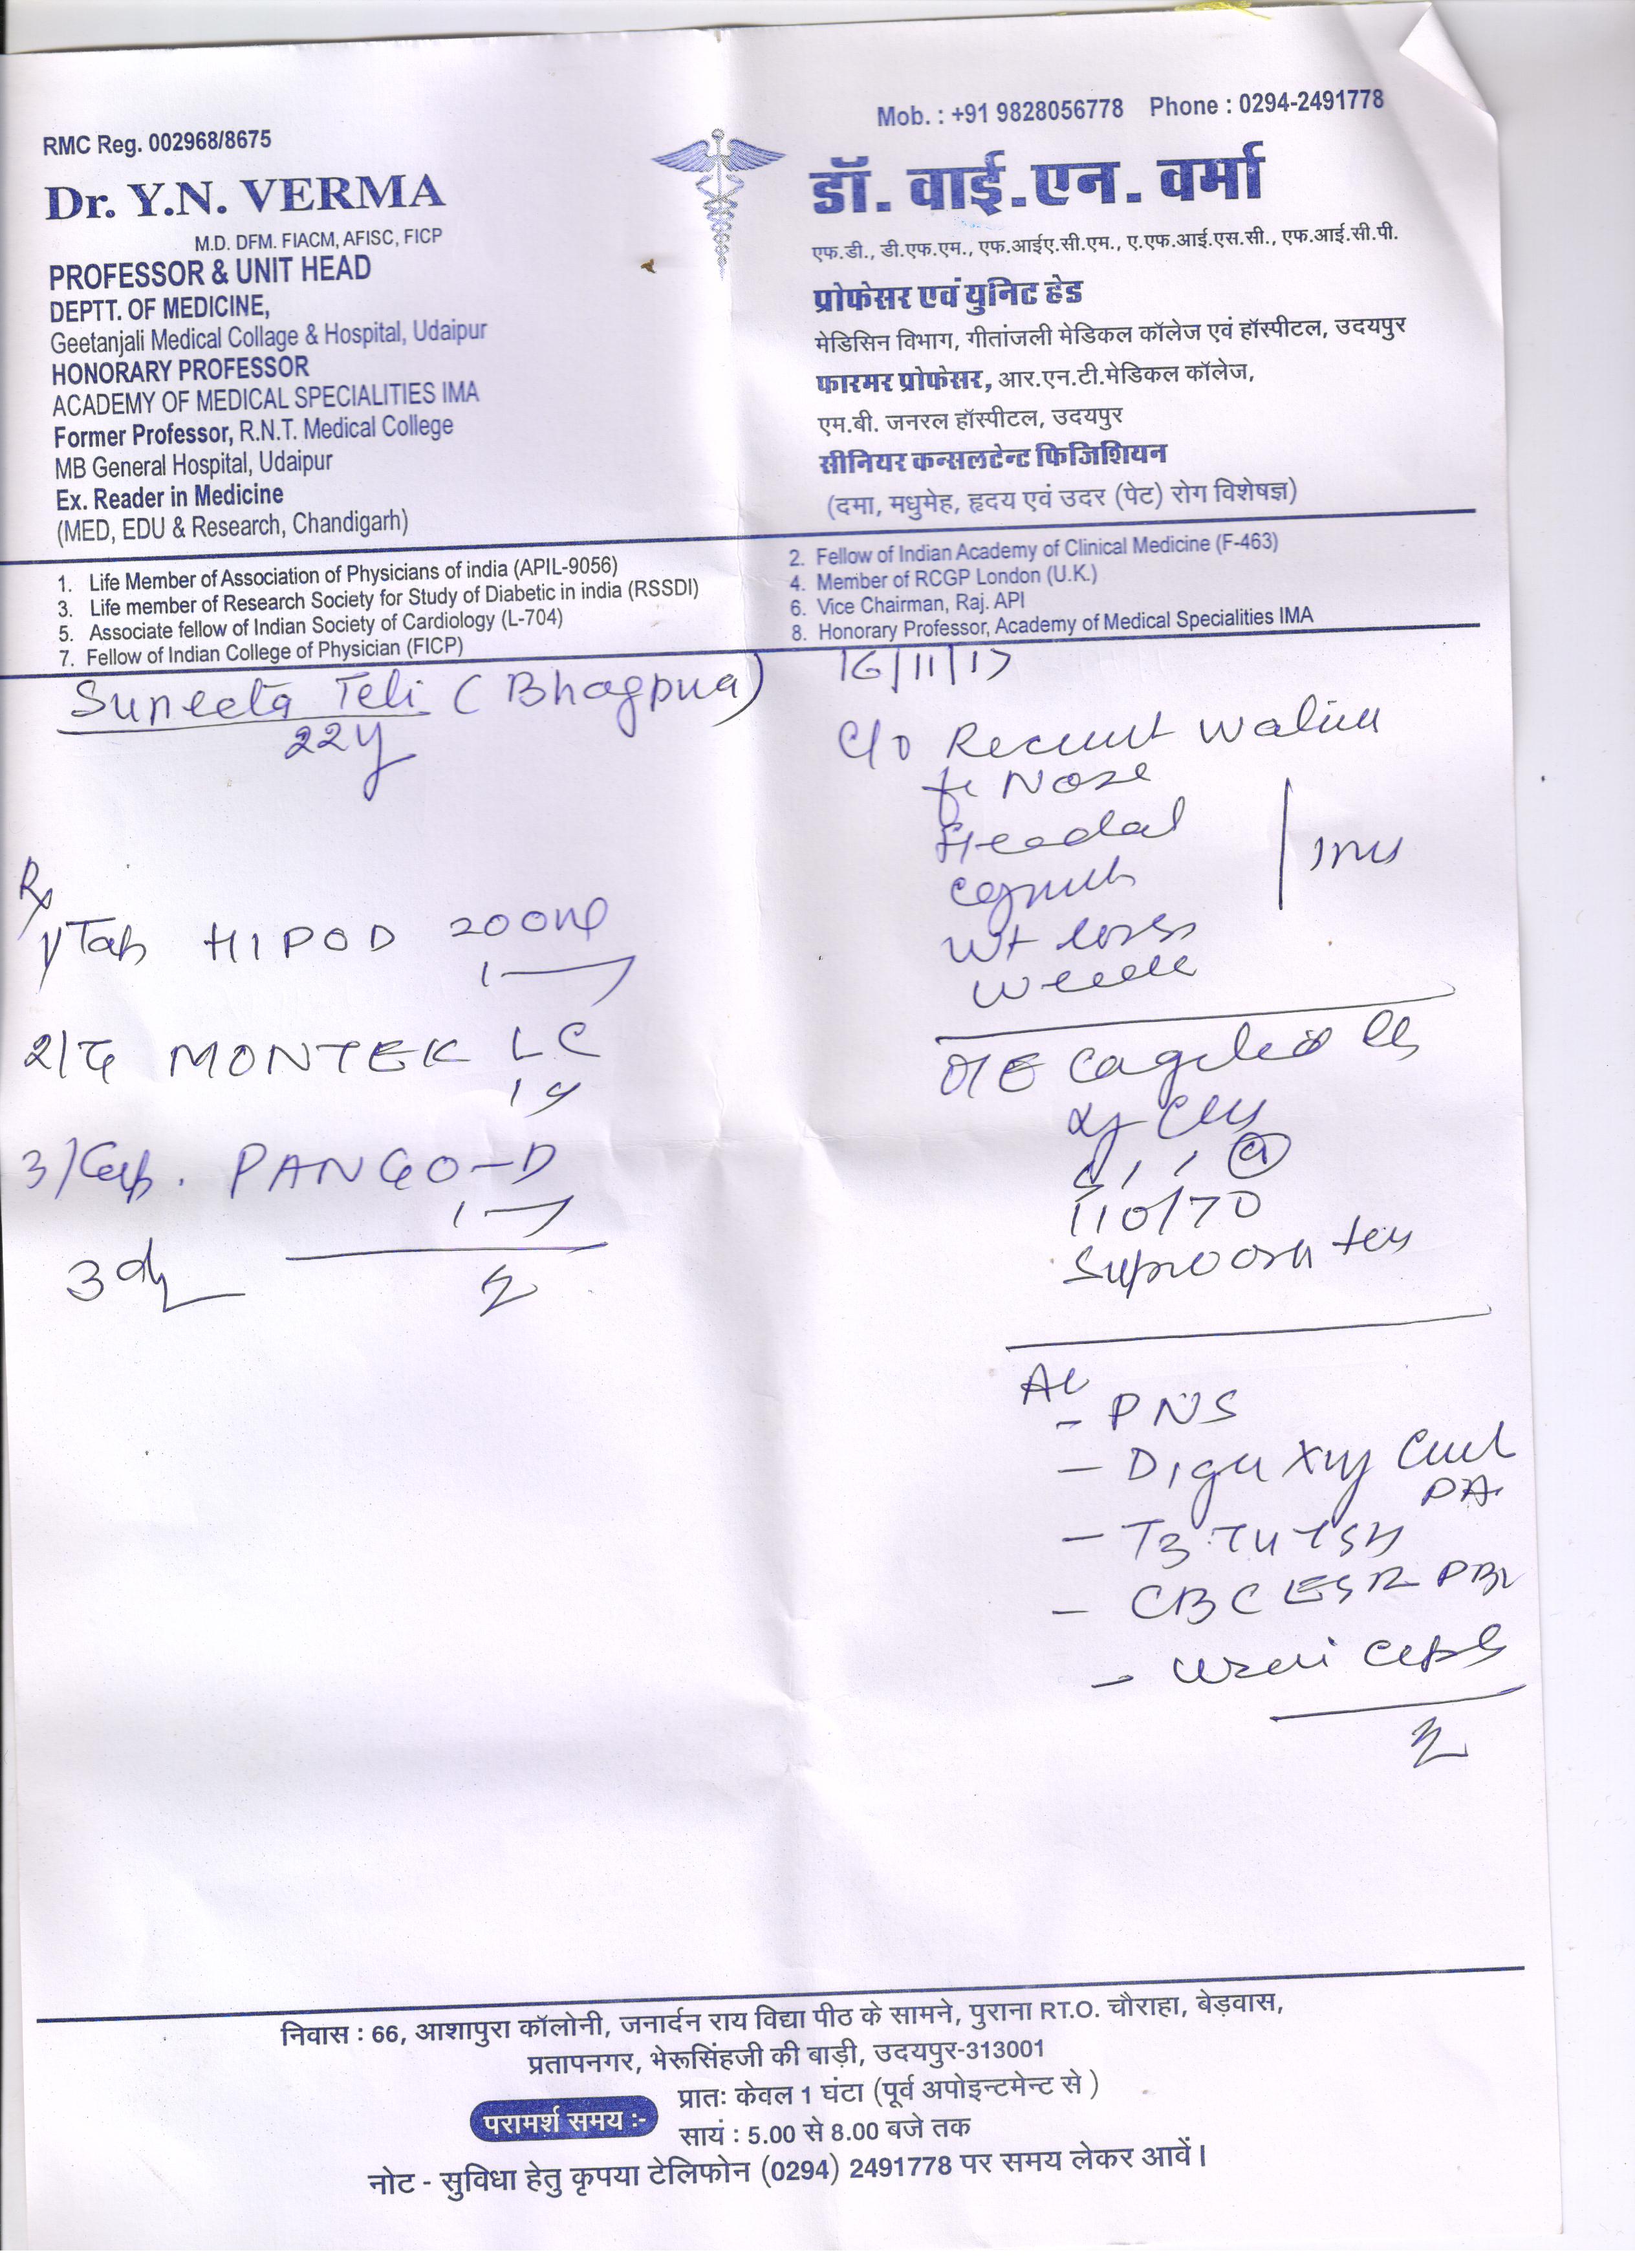 RMC Reg. 002968/8675
Dr. Y.N. VERMA
M.D. DFM. FIACM, AFISC, FICP
PROFESSOR & UNIT HEAD
DEPTT. OF MEDICINE,
Geetanjali Medical Collage & Hospital, Udaipur
HONORARY PROFESSOR
ACADEMY OF MEDICAL SPECIALITIES IMA
Former Professor, R.N.T. Medical College
MB General Hospital, Udaipur
Ex. Reader in Medicine
(MED, EDU & Research, Chandigarh)
Mob. : +91 9828056778 Phone : 0294-2491778
डॉ. वाई.एन. वर्मा
एफ.डी., डी.एफ.एम., एफ.आईए.सी.एम., ए.एफ.आई.एस.सी., एफ.आई.सी.पी.
प्रोफेसर एवं युनिट हेड
मेडिसिन विभाग, गीतांजली मेडिकल कॉलेज एवं हॉस्पीटल, उदयपुर
फारमर प्रोफेसर, आर.एन.टी.मेडिकल कॉलेज,
एम.बी. जनरल हॉस्पीटल, उदयपुर
सीनियर कन्सलटेन्ट फिजिशियन
(दमा, मधुमेह, हृदय एवं उदर (पेट) रोग विशेषज्ञ)
1. Life Member of Association of Physicians of india (APIL-9056)
2. Fellow of Indian Academy of Clinical Medicine (F-463)
3. Life member of Research Society for Study of Diabetic in india (RSSDI)
4. Member of RCGP London (U.K.)
5. Associate fellow of Indian Society of Cardiology (L-704)
6. Vice Chairman, Raj. API
7. Fellow of Indian College of Physician (FICP)
8. Honorary Professor, Academy of Medical Specialities IMA
Suneeta Teli (Bhagpura)
22y
Rx
1/ Tab HIPOD 200mg
1
2/ T MONTEK LC
1
3/ Cap. PANGO-D
1
3d
16/11/17
C/O Recurrent
Nose
Wt loss
O/E
110/70
- PNS
- Digital Xray Chest
PA
- T3 T4 TSH
- CBC ESR PBF
- Urine
निवास : 66, आशापुरा कॉलोनी, जनार्दन राय विद्या पीठ के सामने, पुराना RT.O. चौराहा, बेड़वास,
प्रतापनगर, भेरूसिंहजी की बाड़ी, उदयपुर-313001
परामर्श समय :- प्रातः केवल 1 घंटा (पूर्व अपोइन्टमेन्ट से )
सायं : 5.00 से 8.00 बजे तक
नोट - सुविधा हेतु कृपया टेलिफोन (0294) 2491778 पर समय लेकर आवें।